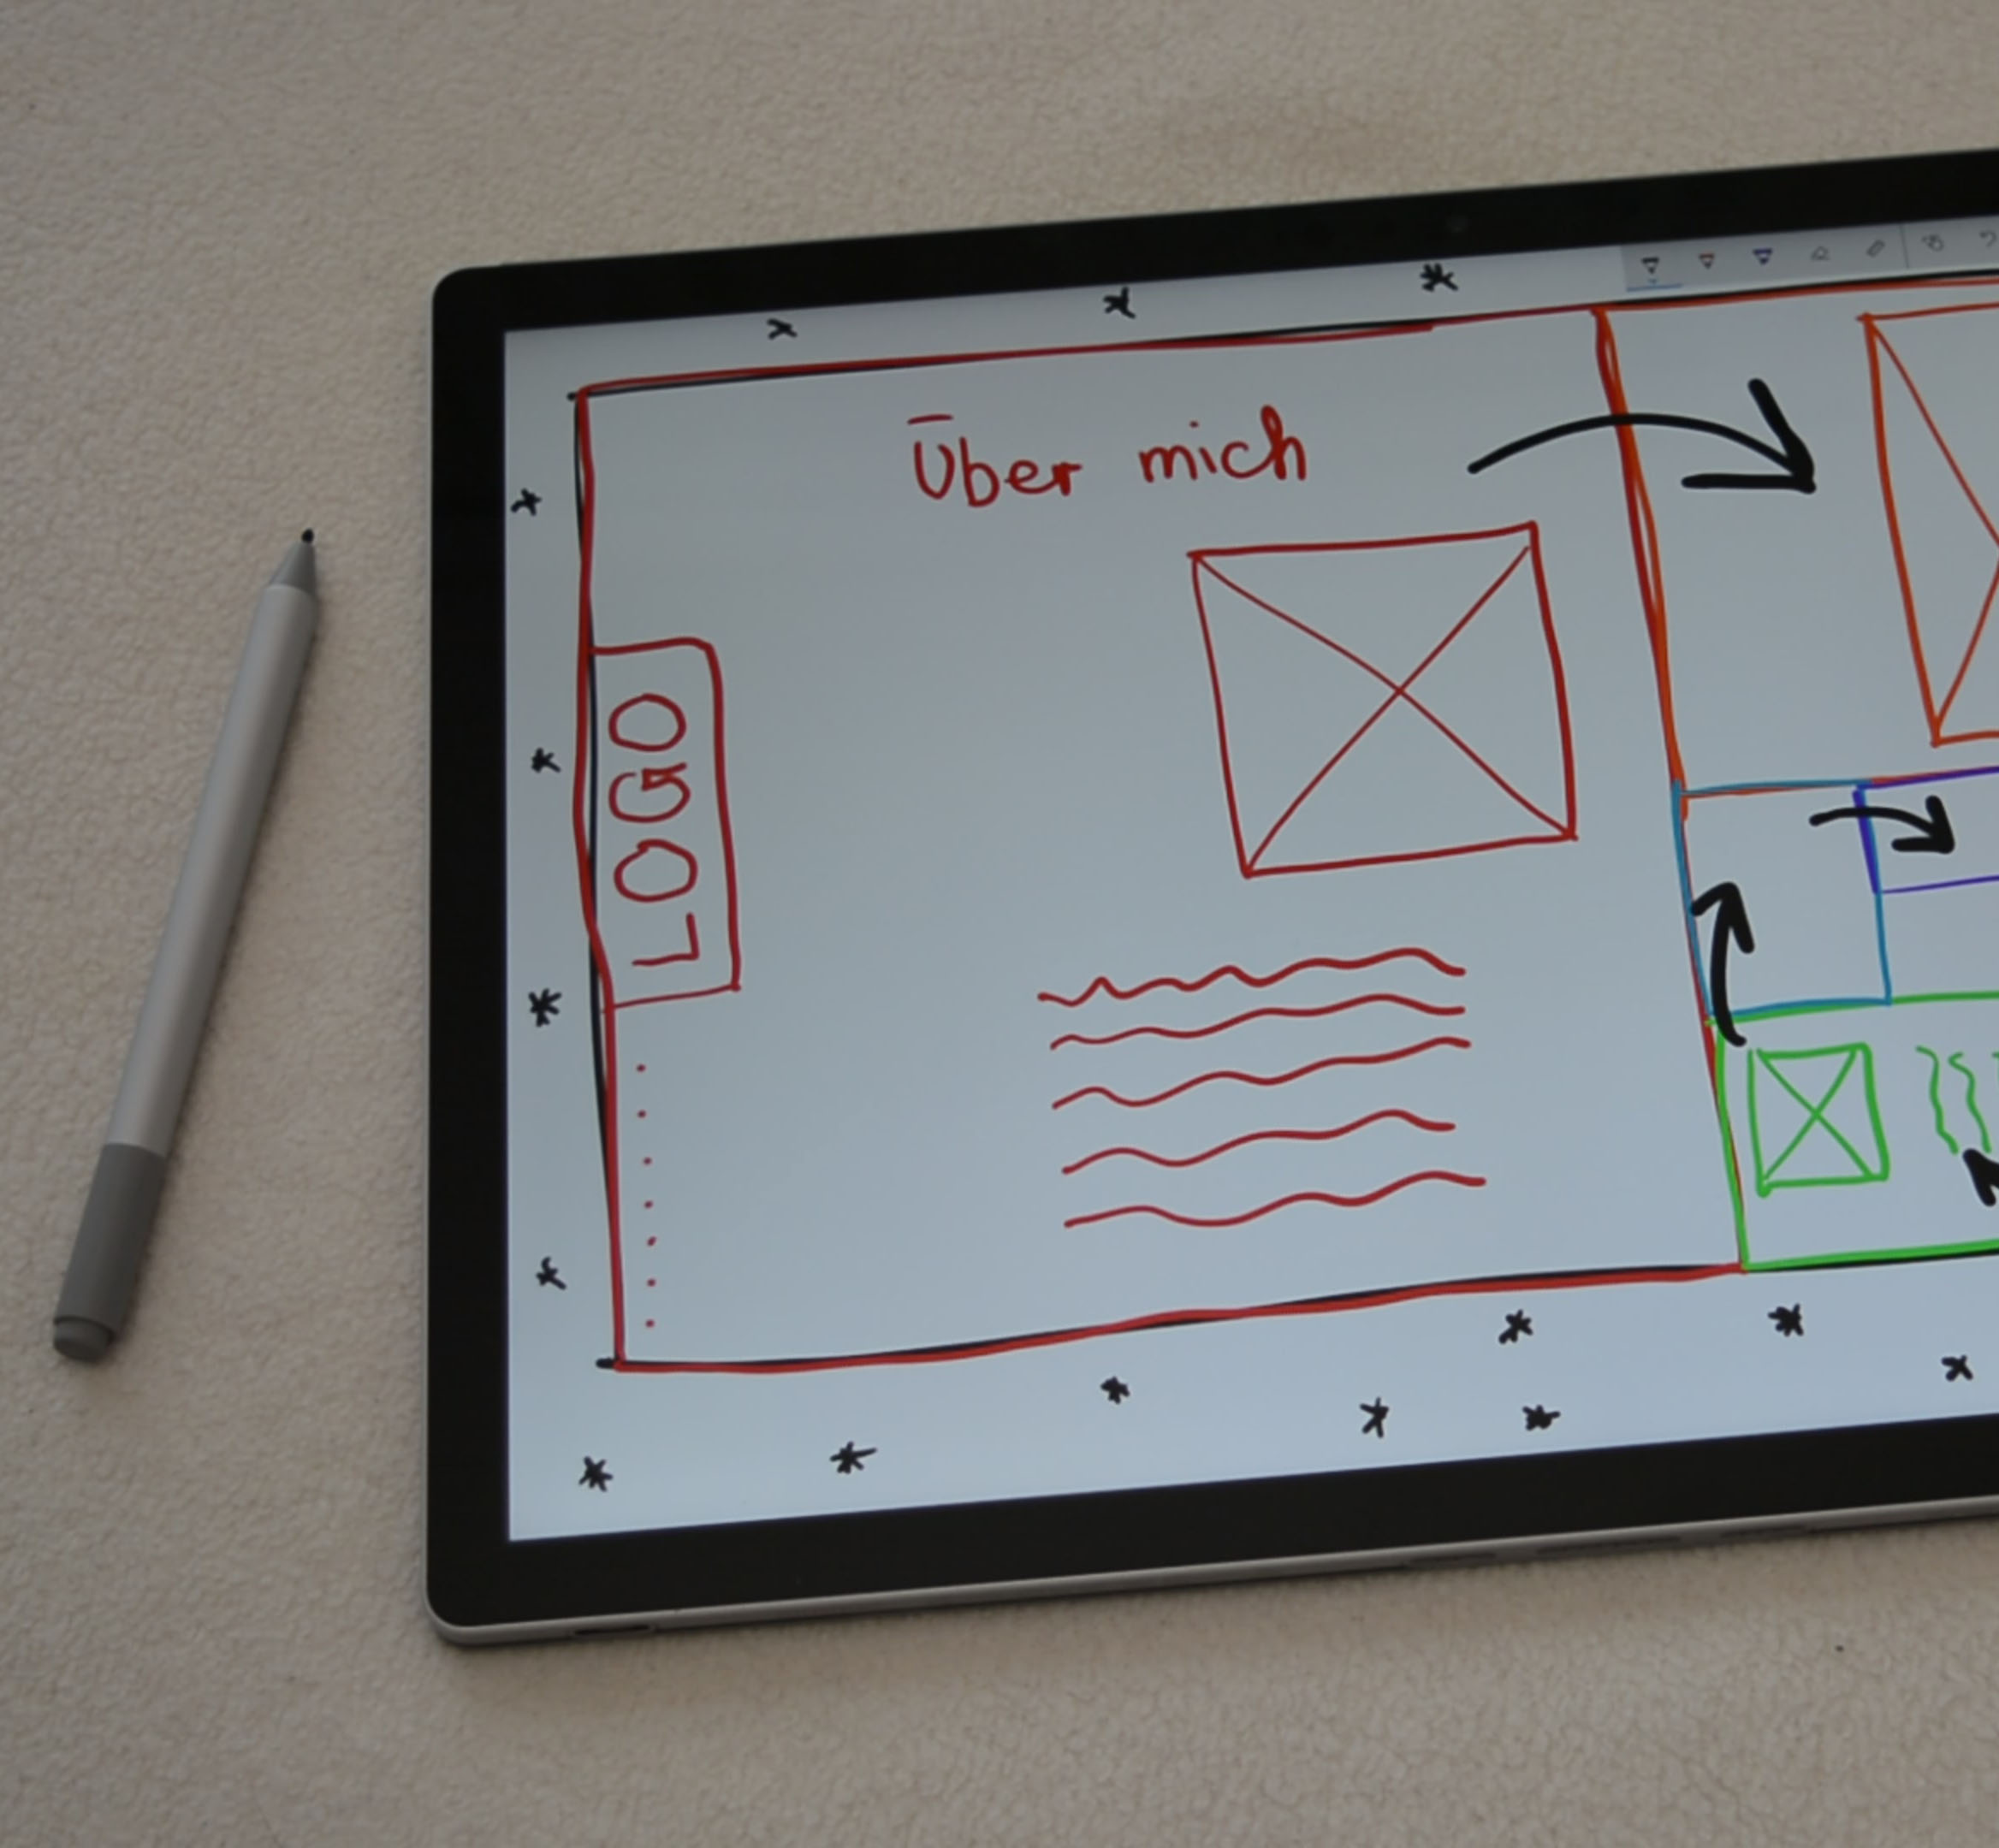 Über mich
LOGO